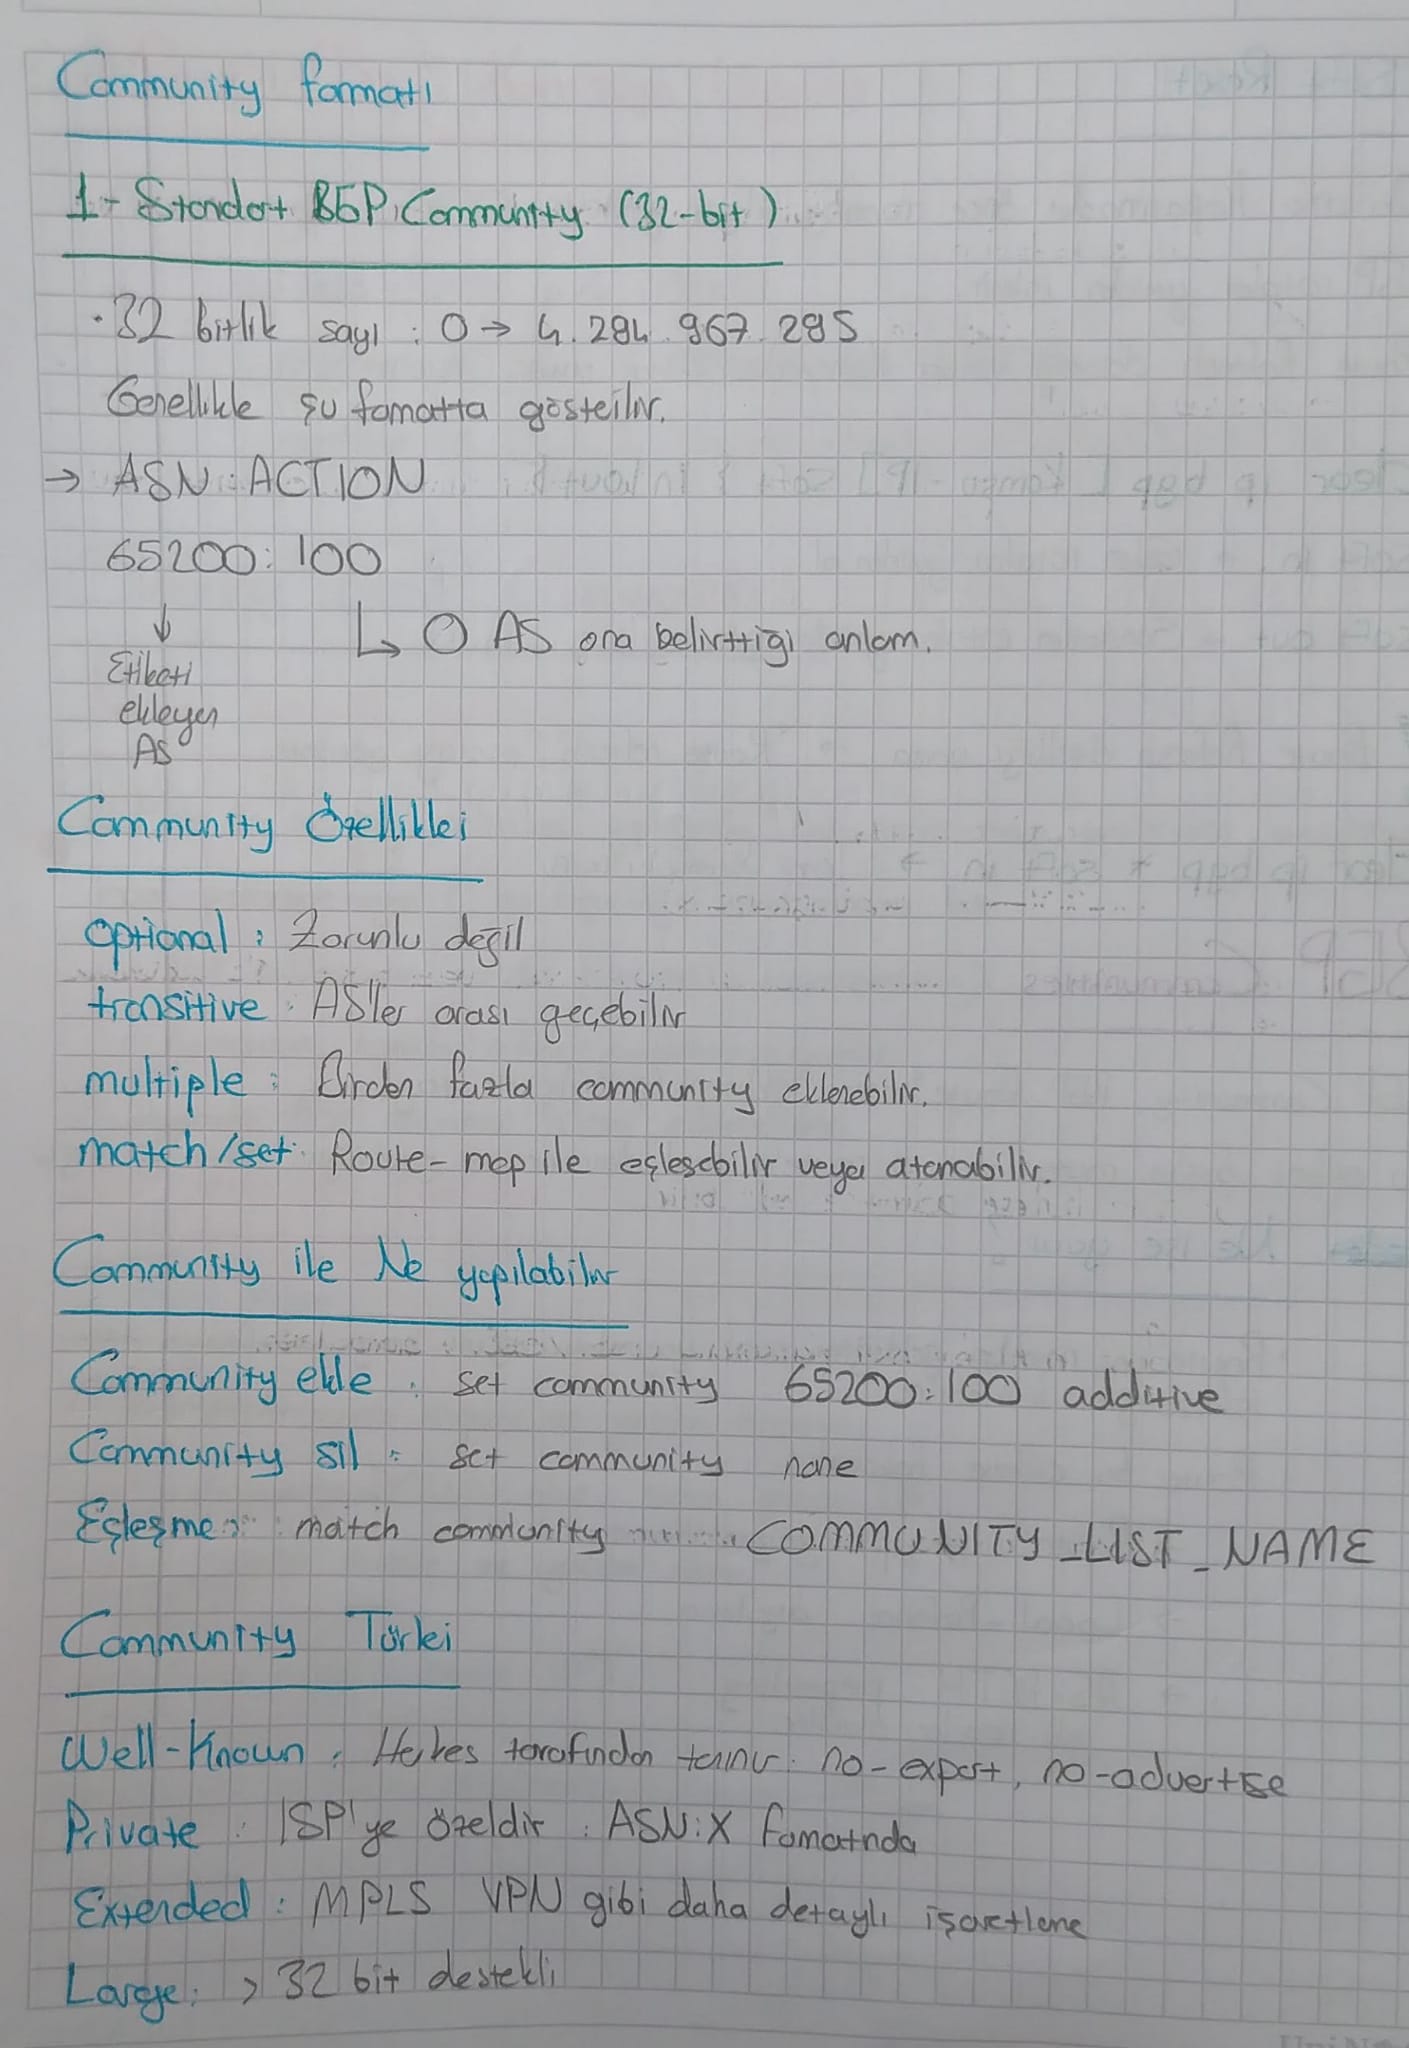 Community formatı
1- Standart BGP Community (32-bit)
· 32 bitlik sayı : 0 → 4.294.967.295
Genellikle şu formatta gösterilir.
→ ASN:ACTION
65200:100
↓ ↳ O AS ona belirttiği anlam.
Etiketi
ekleyen
AS
Community Özellikleri
optional : Zorunlu değil
transitive : AS'ler arası geçebilir
multiple : Birden fazla community eklenebilir.
match/set : Route-map ile eşleşebilir veya atanabilir.
Community ile Ne yapılabilir
Community ekle : set community 65200:100 additive
Community sil : set community none
Eşleşme : match community COMMUNITY_LIST_NAME
Community Türleri
Well-Known : Herkes tarafından tanınır. no-export, no-advertise
Private : ISP'ye özeldir : ASN:X Formatında
Extended : MPLS VPN gibi daha detaylı işaretleme
Large : > 32 bit destekli